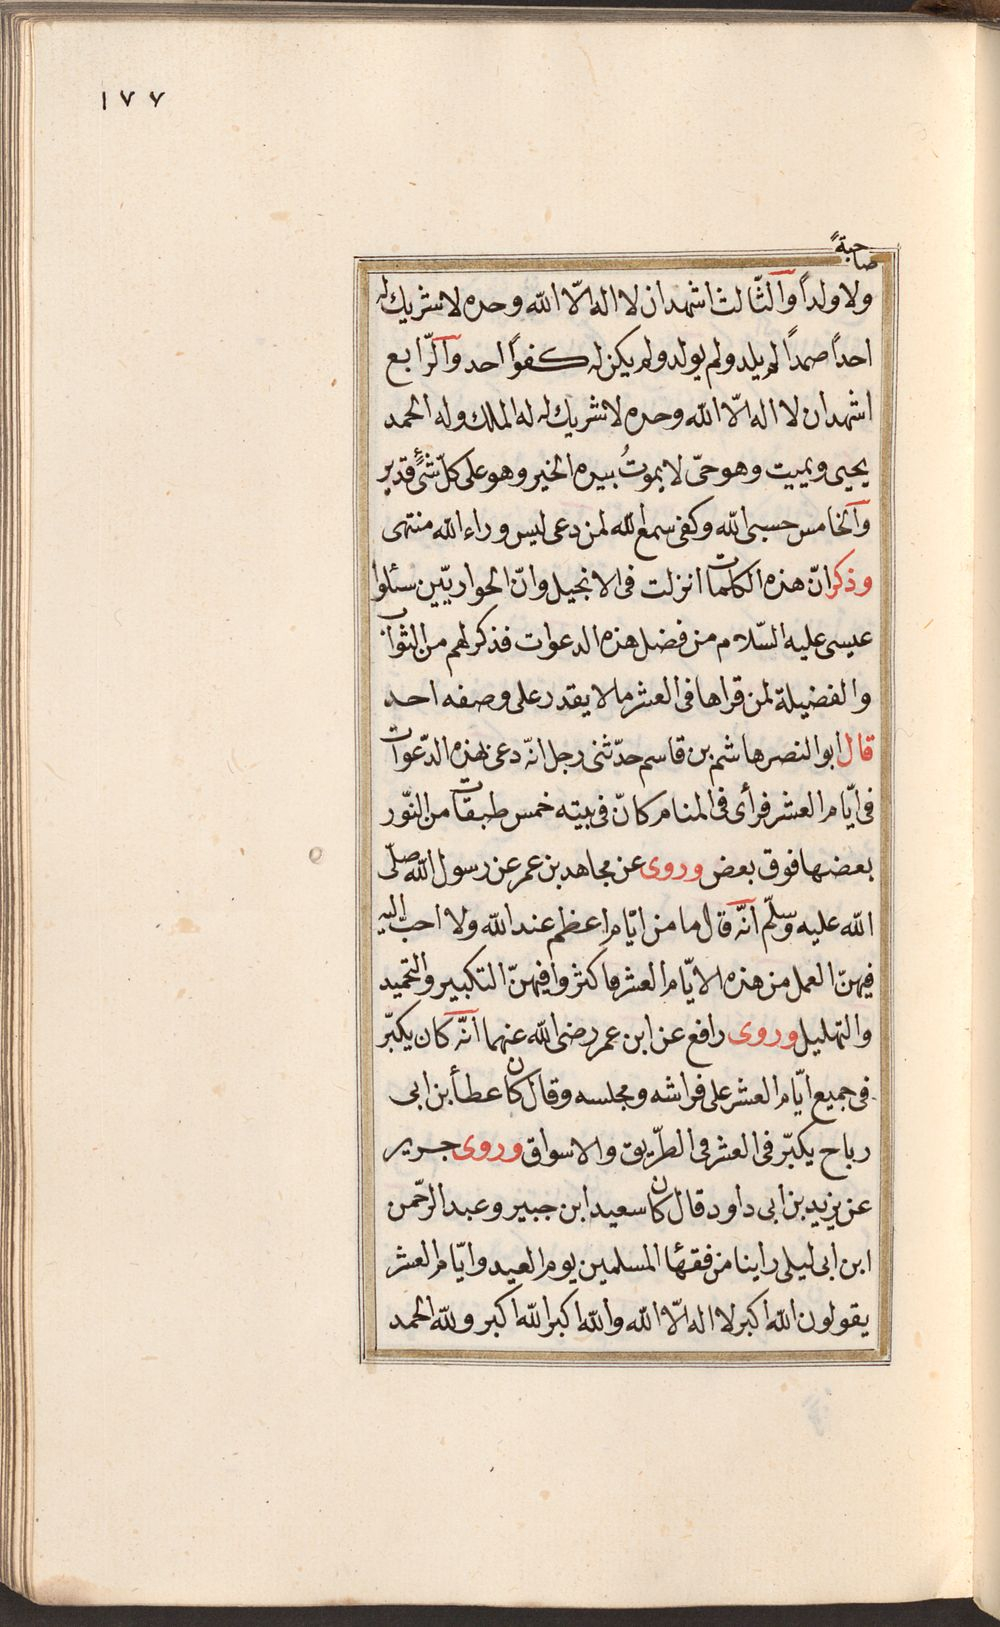 ١٧٧
صاحبةً
ولا ولداً والثّالث اشهد ان لا اله الّا الله وحده لا شريك له
احداً صمداً لم يلد ولم يولد ولم يكن له كفواً احد والرّابع
اشهد ان لا اله الّا الله وحده لا شريك له له الملك وله الحمد
يحيى ويميت وهو حىّ لا يموتُ بيده الخير وهو على كلّ شئٍ قدير
والخامس حسبى الله وكفى سمع الله لمن دعى ليس وراء الله منتهى
وذكر انّ هذه الكلمات انزلت فى الانجيل وانّ الحواريّين سئلوا
عيسى عليه السّلام من فضل هذه الدعوات فذكر لهم من الثواب
والفضيلة لمن قراها فى العشر ما لا يقدر على وصفه احد
قال ابو النصر هاشم بن قاسم حدّثنى رجل انّه دعى بهذه الدّعوات
فى ايّام العشر فرأى فى المنام كانّ فى بيته خمس طبقات من النّور
بعضها فوق بعض وروى عن مجاهد بن عمر عن رسول الله صلّى
الله عليه وسلّم انّه قال ما من ايّام اعظم عند الله ولا احب اليه
فيهنّ العمل من هذه الايّام العشر فاكثروا فيهنّ التكبير والتحميد
والتهليل وروى رافع عن ابن عمر رضى الله عنهما انّه كان يكبّر
فى جميع ايّام العشر على فراشه ومجلسه وقال كان عطأ بن ابى
رباح يكبّر فى العشر فى الطّريق والاسواق وروى جرير
عن يزيد بن ابى داود قال كان سعيد ابن جبير وعبد الرّحمن
ابن ابى ليلى راينا من فقهٔا المسلمين يوم العيد وايّام العشر
يقولون الله اكبر لا اله الّا الله والله اكبر الله اكبر ولله الحمد